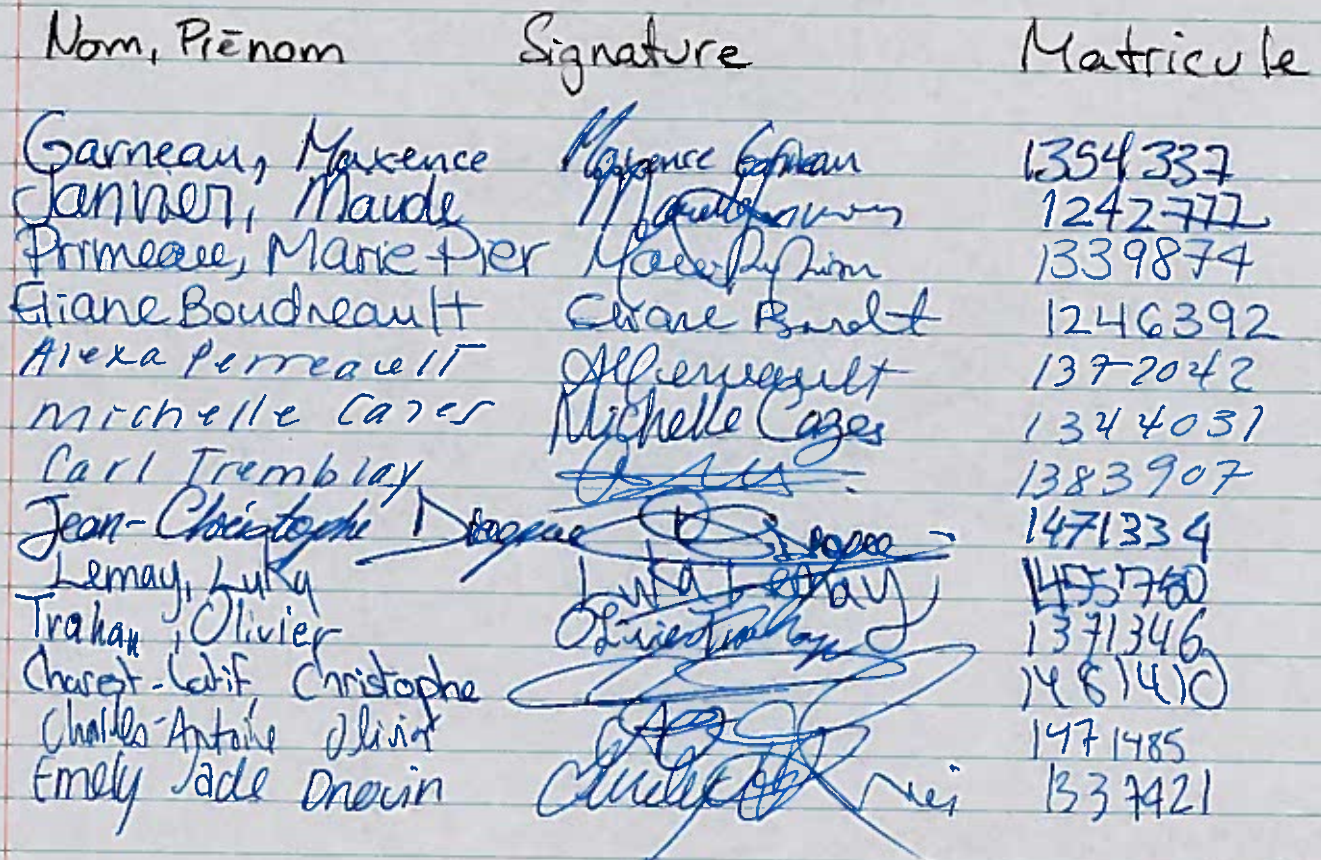 Nom, Prénom Signature Matricule
Garneau, Maxence Maxence Garneau 1354337
Janvier, Maude 1242772
Primeau, Marie-Pier 1339874
Eliane Boudreault 1246392
Alexa Perreault APerreault 1372042
Michelle Cazes Michelle Cazes 1344031
Carl Tremblay 1383907
Jean-Christophe 1471334
Lemay, Luka Luka Lemay
Trahan, Olivier Olivier Trahan 1371346
Charest-Latif, Christophe 1481410
Charles-Antoine Olivier 1471485
Emely Jade Drouin 1337421